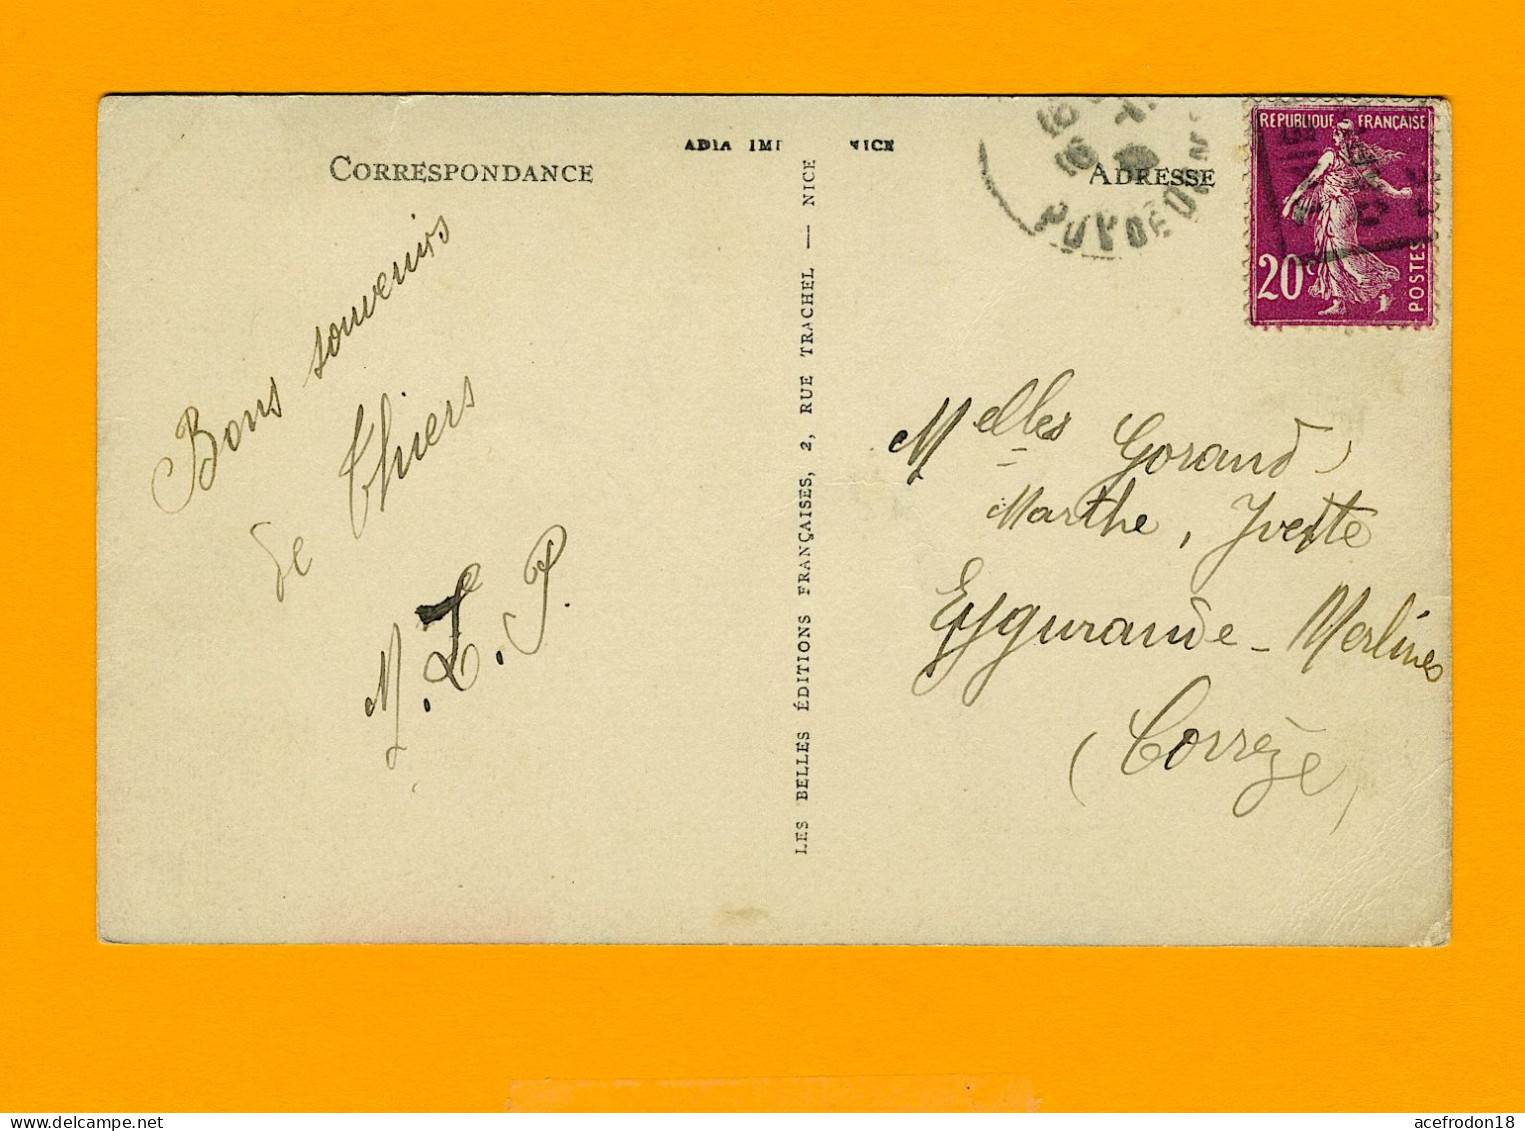 CORRESPONDANCE
ADIA NICE
ADRESSE
PUY DE DOM
RÉPUBLIQUE FRANÇAISE
20c
POSTES
Bons souvenirs
de Thiers
M. T. P.
LES BELLES ÉDITIONS FRANÇAISES, 2, RUE TRACHEL — NICE
Melles Gorand
Marthe, Yvette
Eygurande - Merlines
(Corrèze)
acefrodon18